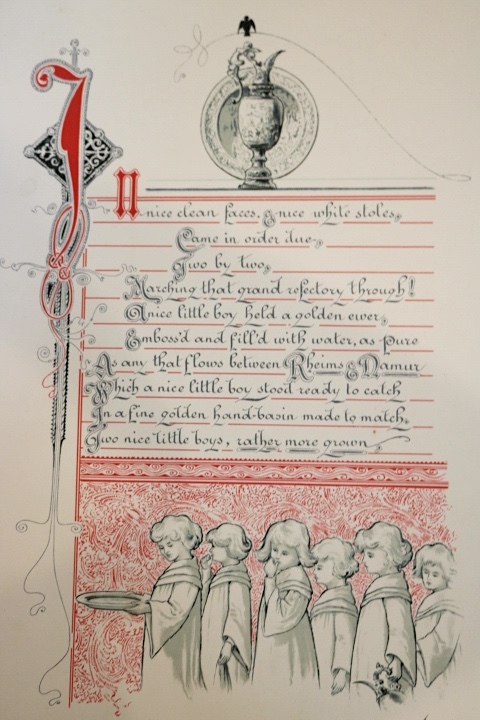 In nice clean faces, & nice white stoles,
Came in order due,
Two by two,
Marching that grand refectory through!
A nice little boy held a golden ewer,
Emboss'd and fill'd with water, as pure
As any that flows between Rheims & Namur
Which a nice little boy stood ready to catch
In a fine golden hand-basin made to match.
Two nice little boys, rather more grown